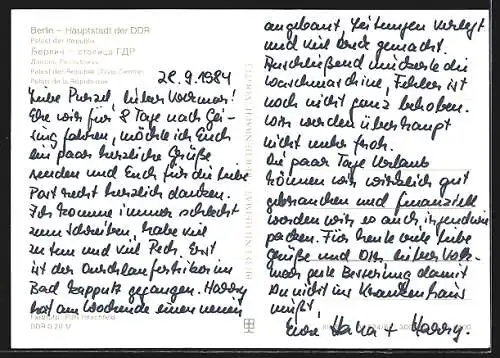 Berlin – Hauptstadt der DDR
Palast der Republik
Берлин – столица ГДР
Дворец Республики
Palast der Republik (Civic Centre)
Palais de la République
28.9.1984
Liebe Purzel, lieber Volkmar!
Ehe wir für 8 Tage nach Gei-
sing fahren, möchte ich Euch
ein paar herzliche Grüße
senden und Euch für die liebe
Post recht herzlich danken.
Ich komme immer schlecht
zum Schreiben, habe viel
zu tun und viel Pech. Erst
ist der Durchlauferhitzer im
Bad kaputt gegangen. Harry
hat am Wochende einen neuen
DDR 0,20 M
BILD UND HEIMAT REICHENBACH (VOGTL)
angebaut Leitungen verlegt
und viel Dreck gemacht.
Anschließend muckerte die
Waschmaschine, Fehler ist
noch nicht ganz behoben.
Wir werden überhaupt
nicht mehr froh.
Die paar Tage Urlaub
können wir wirklich gut
gebrauchen und finanziell
werden wir es auch irgendwie
packen. Für heute viele liebe
Grüße und Dir lieber Volk-
mar gute Besserung damit
Du nicht ins Krankenhaus
mußt,
Eure + Harry.